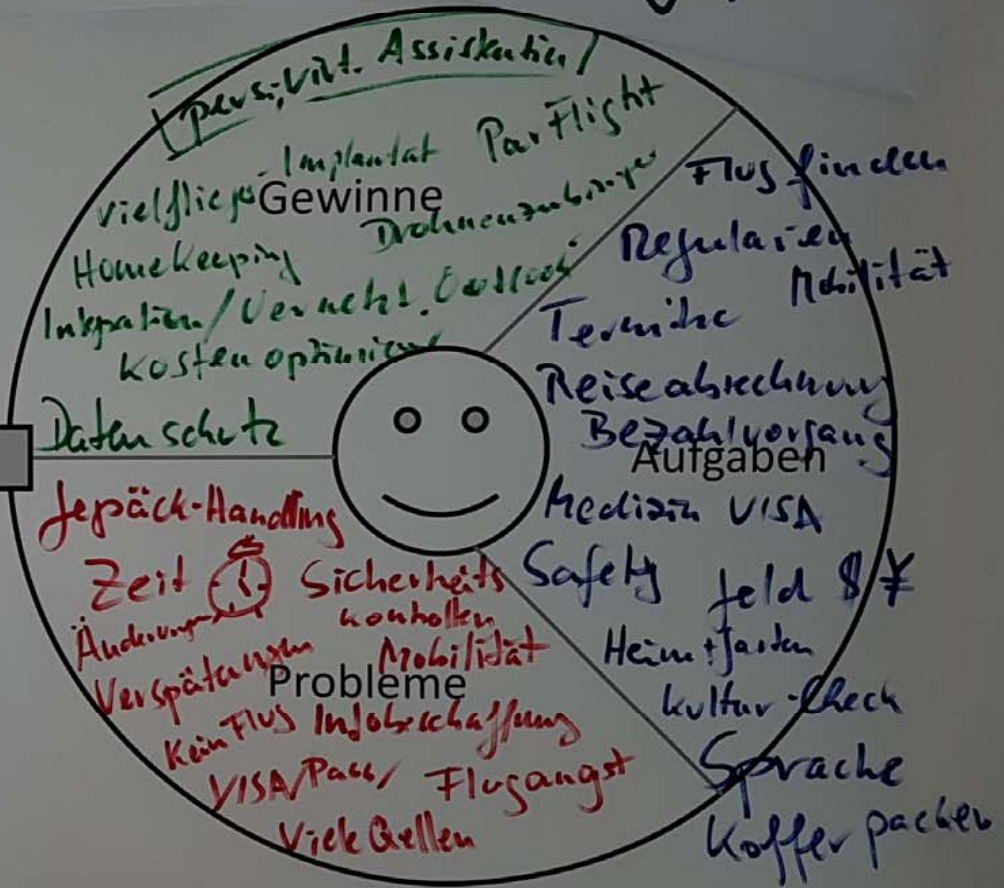 pers. virt. Assistentin
Implantat ParFlight
Vielflieger
Gewinne
Homekeeping
Integration / Vernetzt. Outlook
Kosten
Datenschutz
Flug finden
Regularien
Mobilität
Termine
Reiseabrechnung
Bezahlvorgang
Aufgaben
Medizin VISA
Safety Geld $ ¥
Heim + Garten
Kultur-Check
Sprache
Koffer packen
Gepäck-Handling
Zeit Sicherheits
kontrollen
Änderungen
Mobilität
Verspätungen
Probleme
Kein Flug Infobeschaffung
VISA/Pass/ Flugangst
Viele Quellen